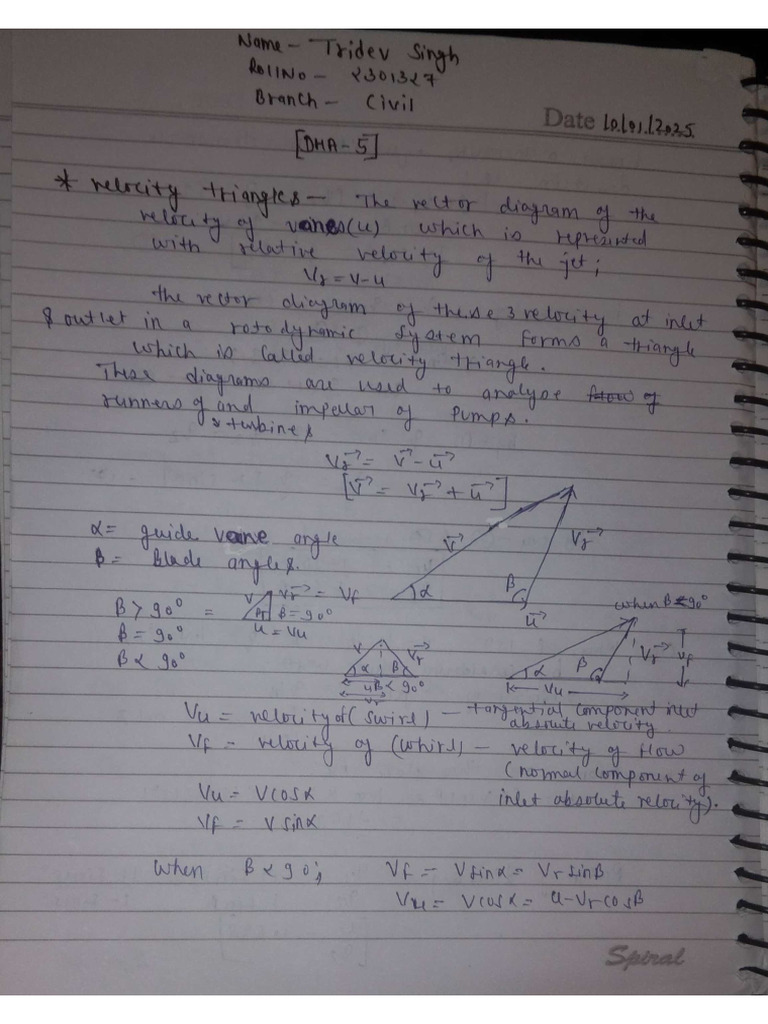 Name - Tridev Singh
Roll No - 2301327
Branch - Civil
Date 10.01.2025
[DHA-5]
* velocity triangles - The vector diagram of the
velocity of vanes(u) which is represented
with relative velocity of the jet;
Vr = V-u
the vector diagram of these 3 velocity at inlet
& outlet in a rotodynamic system forms a triangle
which is called velocity triangle.
These diagrams are used to analyse flow of
runners of and impellar of pumps.
& turbines
Vr→ = V→ - u→
[V→ = Vr→ + u→]
α = guide vane angle
β = Blade angles.
V→ Vr→ α β u→
β > 90° = V Vr→ = Vf β = 90° u = Vu
β = 90°
β < 90°
V Vr→ α β uβ < 90°
when β < 90°
α β Vr→ Vf Vu
Vu = velocity of (swirl) - tangential component inlet
absolute velocity.
Vf = velocity of (whirl) - velocity of flow
(normal component of
inlet absolute velocity).
Vu = Vcosα
Vf = Vsinα
When β < 90°; Vf = Vsinα = Vr sinβ
Vu = Vcosα = u-Vr cosβ
Spiral